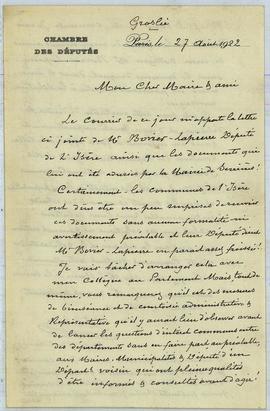 Groslée
CHAMBRE
DES DÉPUTÉS
Paris, le 27 Août 1922
Mon Cher Maire & ami
Le Courrier de ce jour m'apporte la lettre
ci jointe de Mr Bovier-Lapierre Député
de l'Isère ainsi que les documents qui
lui ont été adressés par la Mairie de
Certainement les communes de l'Isère
ont dû être un peu surprises de recevoir
ces documents sans aucune formalité ni
avertissement préalable et leur Député
Mr Bovier-Lapierre en parait assez froissé!
Je vais tâcher d'arranger cela avec
mon Collègue au Parlement Mais tout de
même, vous remarquerez qu'il est des mesures
de bienséance et de courtoisie administrative &
Représentative qu'il y aurait lieu d'observer avant
de lancer les questions d'intérêt commun entre
des départements sans en faire part au préalable,
aux Maires, Municipalités & Députés d'un
Départt voisin qui ont pleine qualité
d'être informés & consultés avant d'agir!